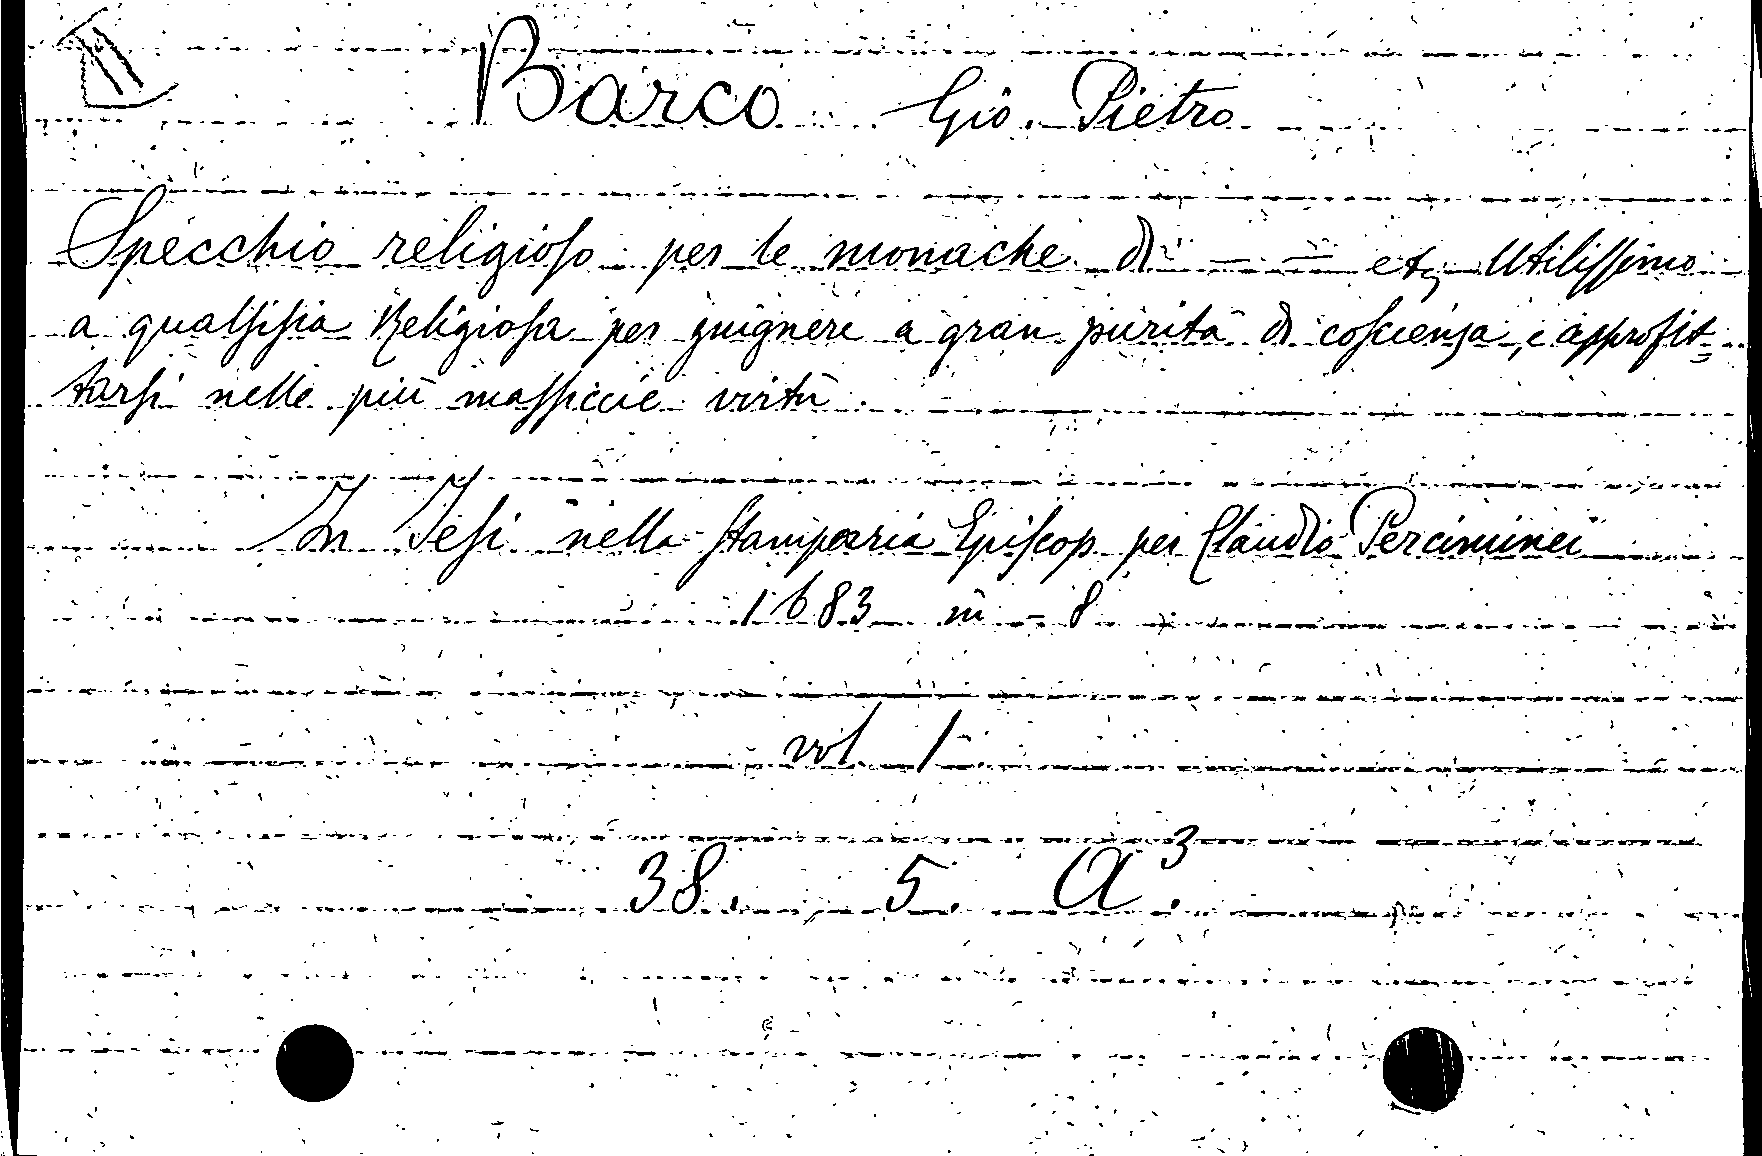 Barco Gio. Pietro
Specchio religioſo per le monache di — — etc Utiliſſimo
a qualſiſia Religioſa per giugnere a gran purità di coſcienza, e approfit=
tarſi nelle più maſſiccie virtù
In Jeſi nella ſtamparia Epiſcop. per Claudio Perciminei
1683 in - 8
vol. 1
38. 5. A³.